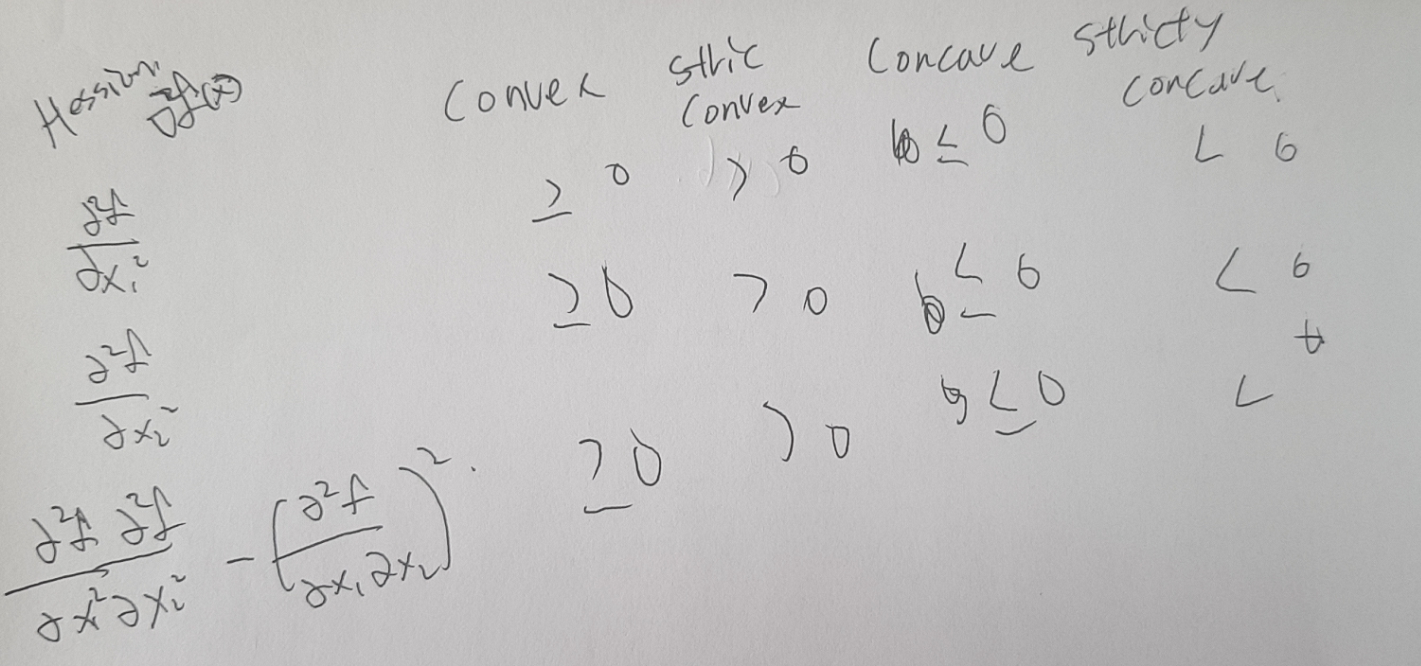 Hessian ∇²f(x) Convex stric Convex Concave strictly concave.
∂²f/∂x₁² ≥ 0 > 0 ≤ 0 < 0
∂²f/∂x₂² ≥ 0 > 0 ≤ 0 < 0
∂²f ∂²f/∂x₁² ∂x₂² - (∂²f/∂x₁∂x₂)². ≥ 0 > 0 ≤ 0 <